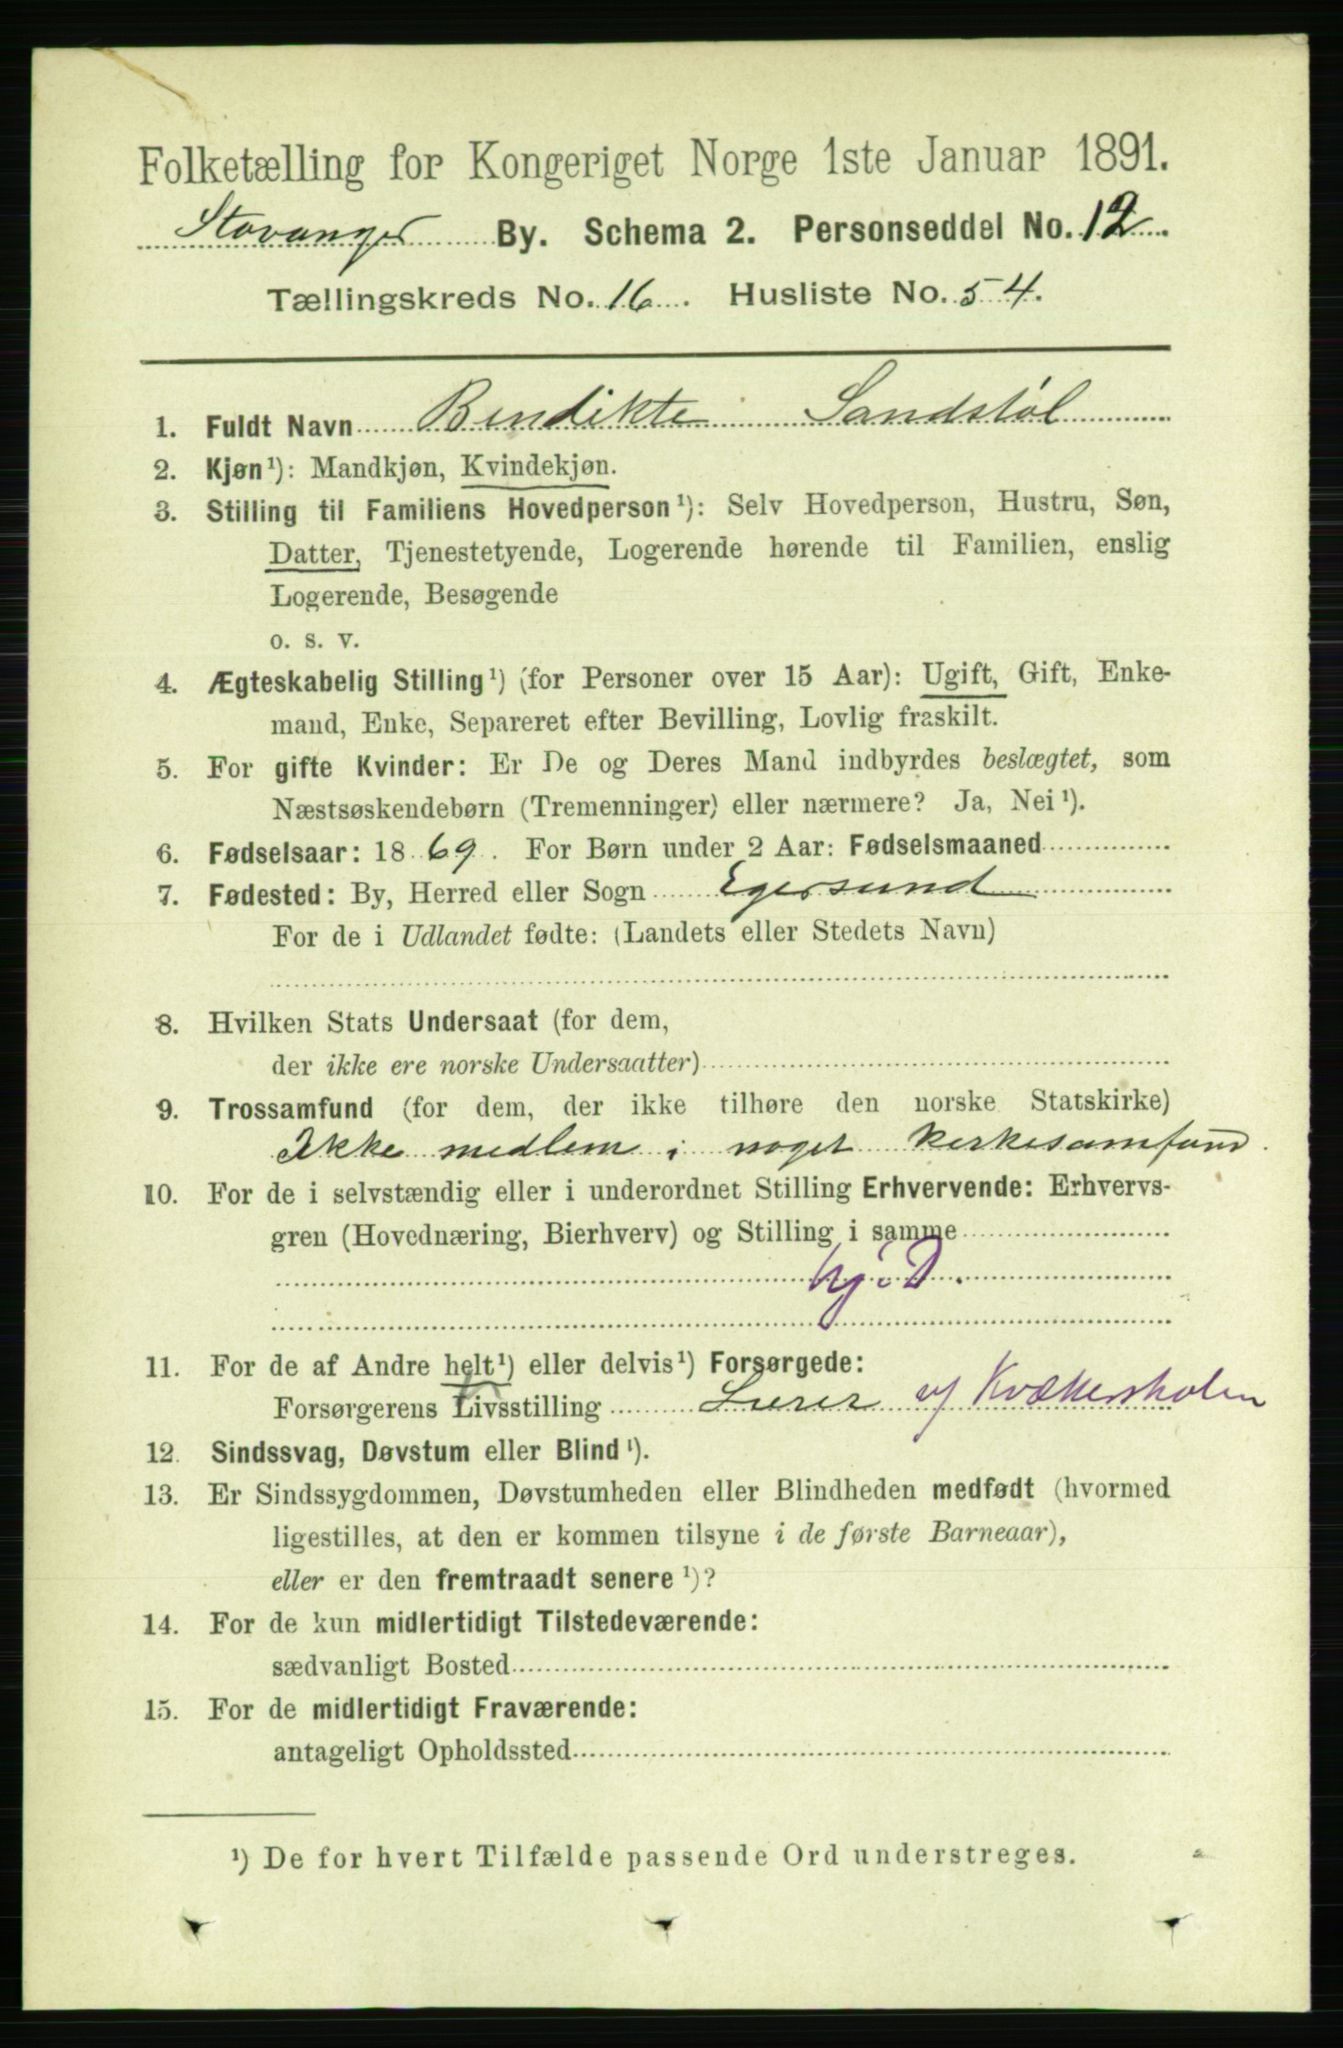 Folketælling for Kongeriget Norge 1ste Januar 1891.
Stavanger By. Schema 2. Personseddel No. 12.
Tællingskreds No. 16. Husliste No. 54.
1. Fuldt Navn Bendikte Sandstøl
2. Kjøn ¹): Mandkjøn, Kvindekjøn.
3. Stilling til Familiens Hovedperson ¹): Selv Hovedperson, Hustru, Søn,
Datter, Tjenestetyende, Logerende hørende til Familien, enslig
Logerende, Besøgende
o. s. v.
4. Ægteskabelig Stilling ¹) (for Personer over 15 Aar): Ugift, Gift, Enke-
mand, Enke, Separeret efter Bevilling, Lovlig fraskilt.
5. For gifte Kvinder: Er De og Deres Mand indbyrdes beslægtet, som
Næstsøskendebørn (Tremenninger) eller nærmere? Ja, Nei ¹).
6. Fødselsaar: 1869. For Børn under 2 Aar: Fødselsmaaned
7. Fødested: By, Herred eller Sogn Egersund
For de i Udlandet fødte: (Landets eller Stedets Navn)
8. Hvilken Stats Undersaat (for dem,
der ikke ere norske Undersaatter)
9. Trossamfund (for dem, der ikke tilhøre den norske Statskirke)
Ikke medlem i noget kirkesamfund.
10. For de i selvstændig eller i underordnet Stilling Erhvervende: Erhvervs-
gren (Hovednæring, Bierhverv) og Stilling i samme
hj. D.
11. For de af Andre helt ¹) eller delvis ¹) Forsørgede:
Forsørgerens Livsstilling Lærer v/ Kvækerskolen
12. Sindssvag, Døvstum eller Blind ¹).
13. Er Sindssygdommen, Døvstumheden eller Blindheden medfødt (hvormed
ligestilles, at den er kommen tilsyne i de første Barneaar),
eller er den fremtraadt senere ¹)?
14. For de kun midlertidigt Tilstedeværende:
sædvanligt Bosted
15. For de midlertidigt Fraværende:
antageligt Opholdssted
¹) De for hvert Tilfælde passende Ord understreges.